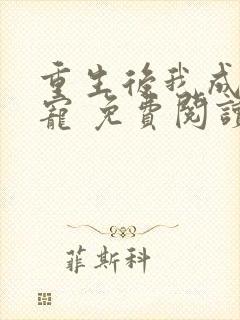 重生後我成
寵 免費閱讀
菲斯科